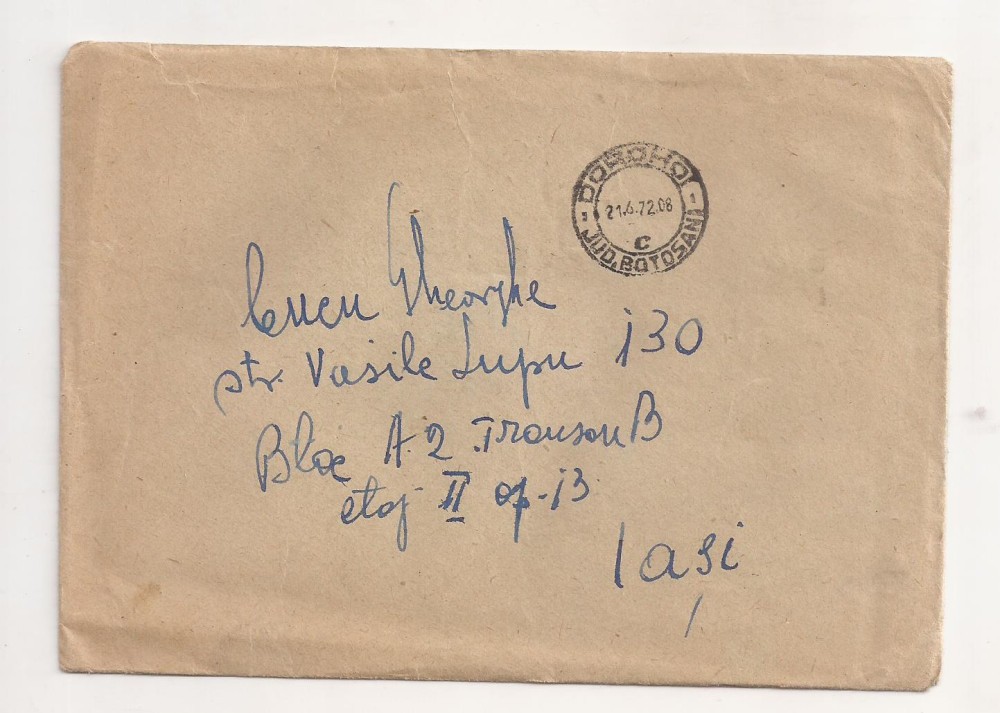 DOROHOI
21.6.72.08
C
JUD. BOTOSANI
Cucu Gheorghe
str. Vasile Lupu 130
Bloc A.2 Tronson B
etaj II ap. 13
Iași